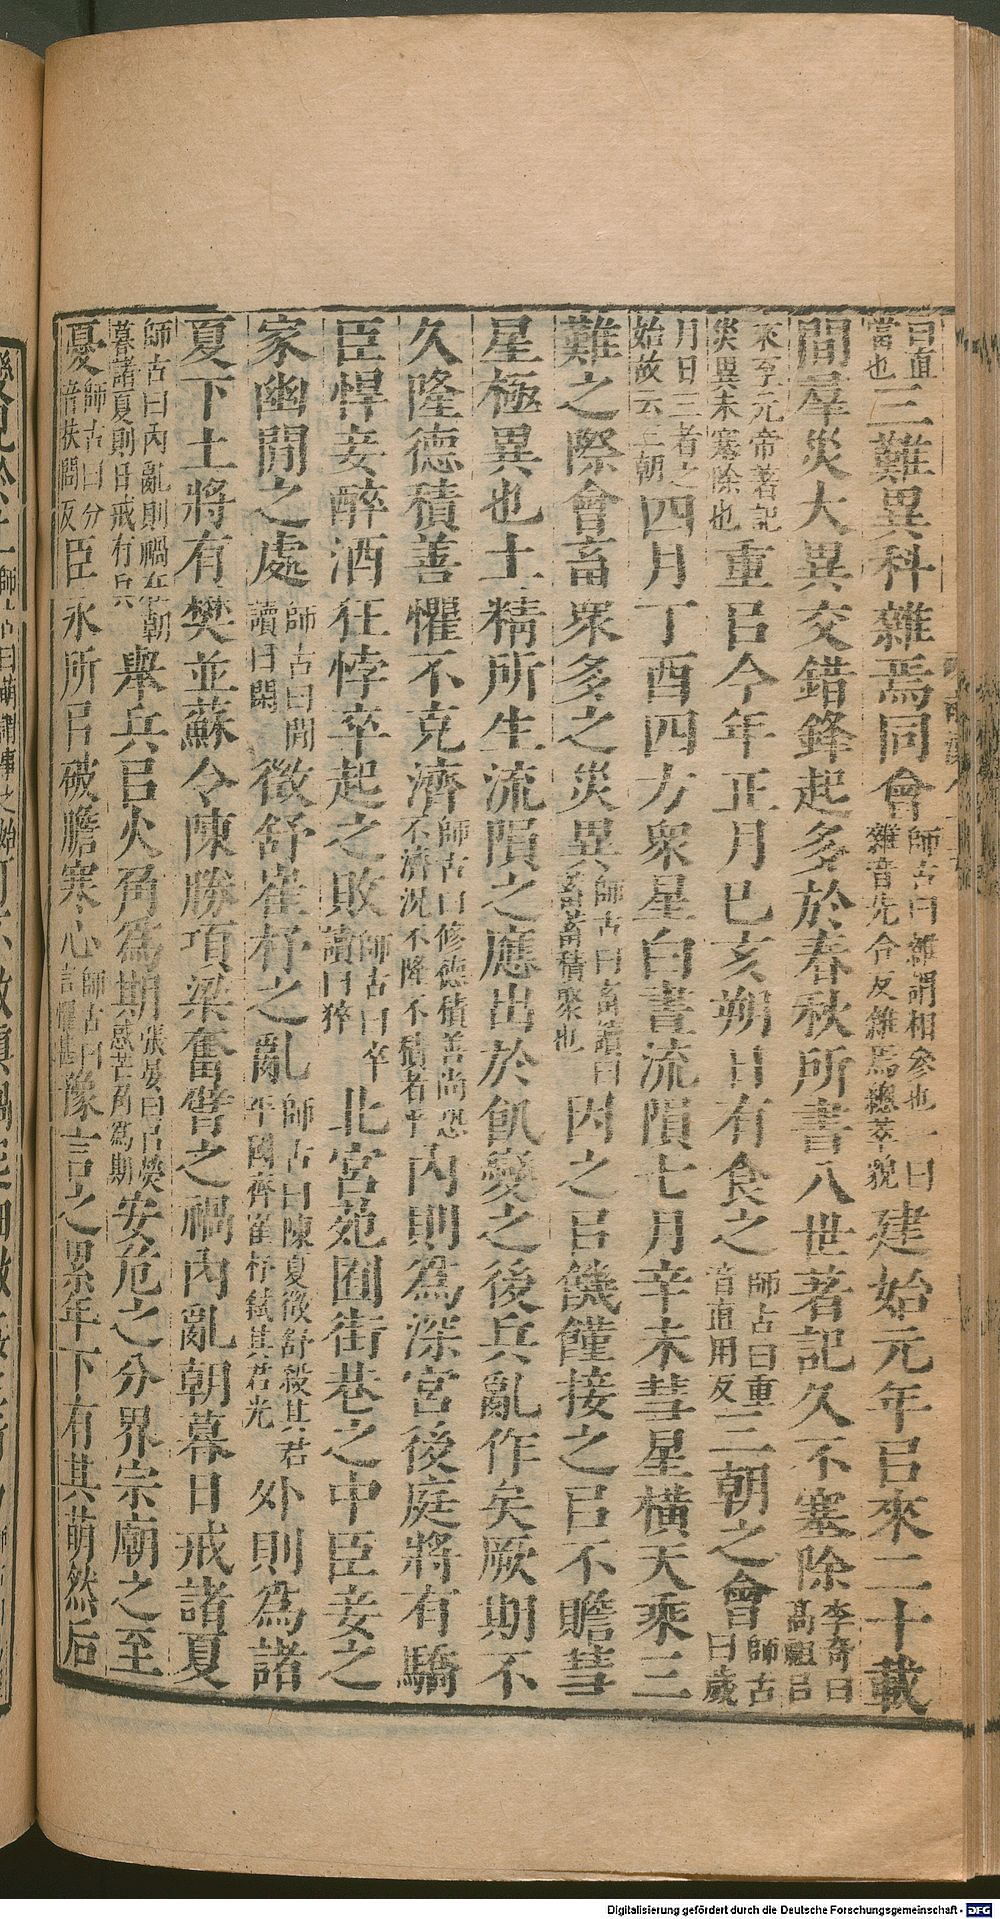 曰直當也三難異科雜焉同會師古曰雜謂相參也一曰雜音先合反雜焉總萃貌建始元年㠯來二十載
間羣災大異交錯鋒起多於春秋所書八世著記久不塞除李奇曰高祖㠯
來至元帝著記災異未塞除也重㠯今年正月已亥朔日有食之師古曰重音直用反三朝之會師古曰歲
月日三者之始故云三朝四月丁酉四方衆星白晝流隕七月辛未彗星橫天乘三
難之際會畜衆多之災異師古曰畜讀曰蓄蓄積聚也因之㠯饑饉接之㠯不贍彗
星極異也土精所生流隕之應出於飢變之後兵亂作矣厥期不
久隆德積善懼不克濟師古曰修德積善尚恐不濟況不隆不積者乎內則爲深宮後庭將有驕
臣悍妾醉酒狂悖卒起之敗師古曰卒讀曰猝北宮苑囿街巷之中臣妾之
家幽閒之處師古曰閒讀曰閑徵舒崔杼之亂師古曰陳夏徵舒殺其君平國齊崔杼弒其君光外則爲諸
夏下土將有樊並蘇令陳勝項梁奮臂之禍內亂朝暮日戒諸夏
師古曰內亂則禍在朝暮諸夏則日戒有兵舉兵㠯火角爲期張晏曰㠯熒惑芒角爲期安危之分界宗廟之至
憂師古曰分音扶問反臣永所㠯破膽寒心師古曰言懼甚豫言之累年下有其萌然后